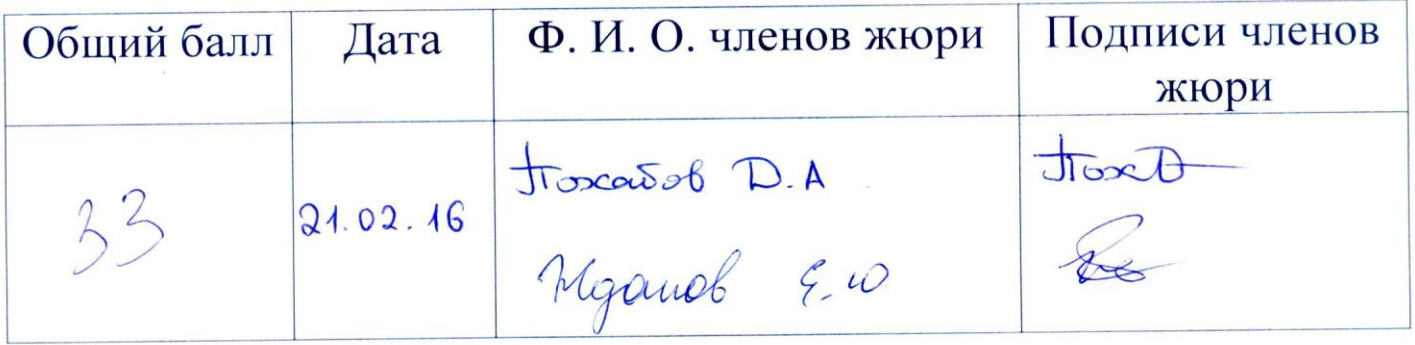 Общий балл Дата Ф. И. О. членов жюри Подписи членов жюри
33 21.02.16 Похабов Д.А Пох
Жданов Е.Ю